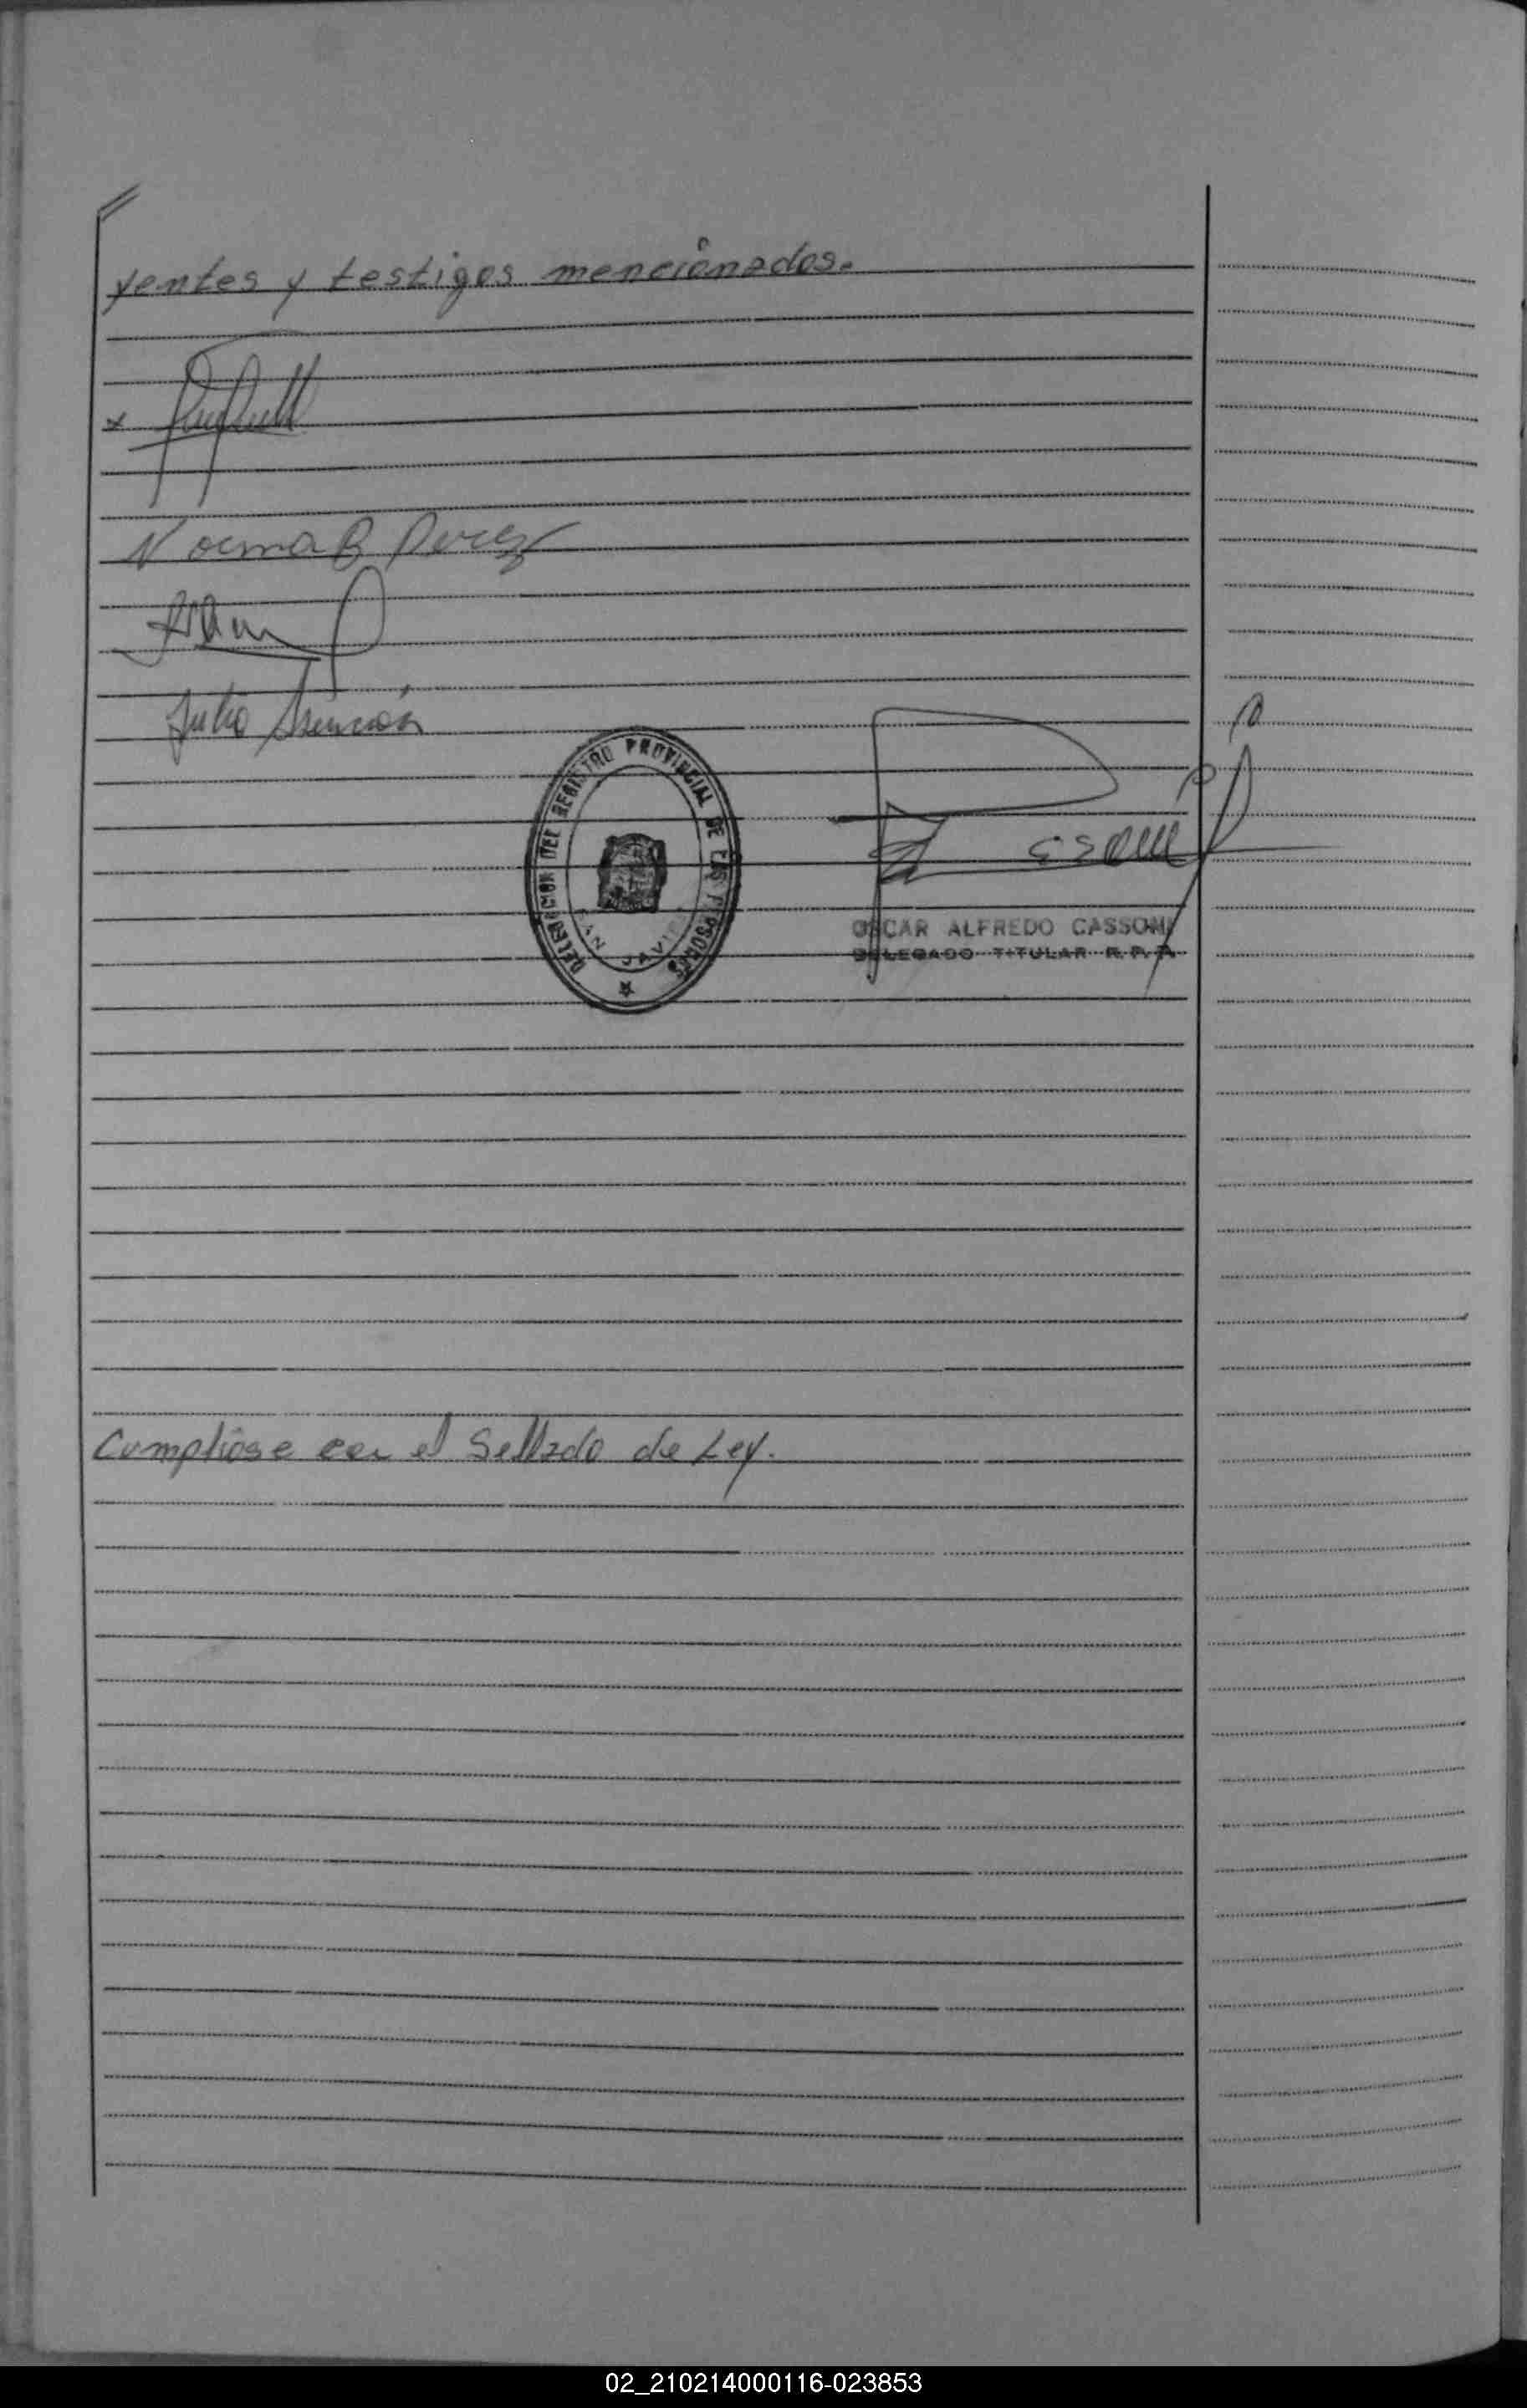 yentes y testigos mencionados.
Norma B Perez
Julio Asunción
DELEGACION DEL REGISTRO PROVINCIAL DE LAS PERSONAS
SAN JAVIER
OSCAR ALFREDO CASSONI
DELEGADO TITULAR R. P. P.
Cumplióse con el Sellado de Ley.
02_210214000116-023853